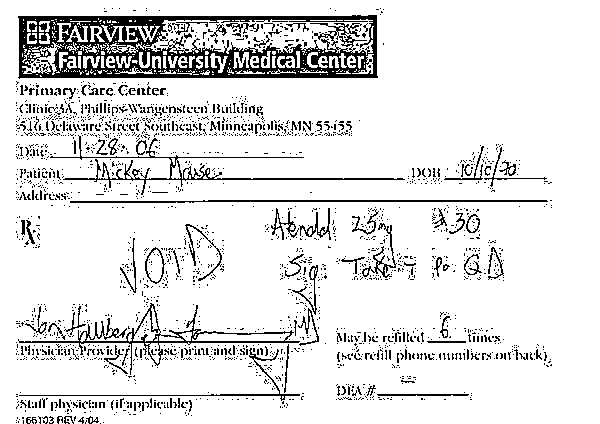 FAIRVIEW
Fairview-University Medical Center
Primary Care Center
Clinic 3A, Phillips-Wangensteen Building
516 Delaware Street Southeast, Minneapolis, MN 55455
Date 11.28.06
Patient Mickey Mouse DOB 10/10/70
Address
Rx
VOID
Atenolol 25mg #30
Sig Take T po QD
MD
Physician/Provider (please print and sign)
May be refilled 6 times
(see refill phone numbers on back)
DEA #
Staff physician (if applicable)
166103 REV 4/04